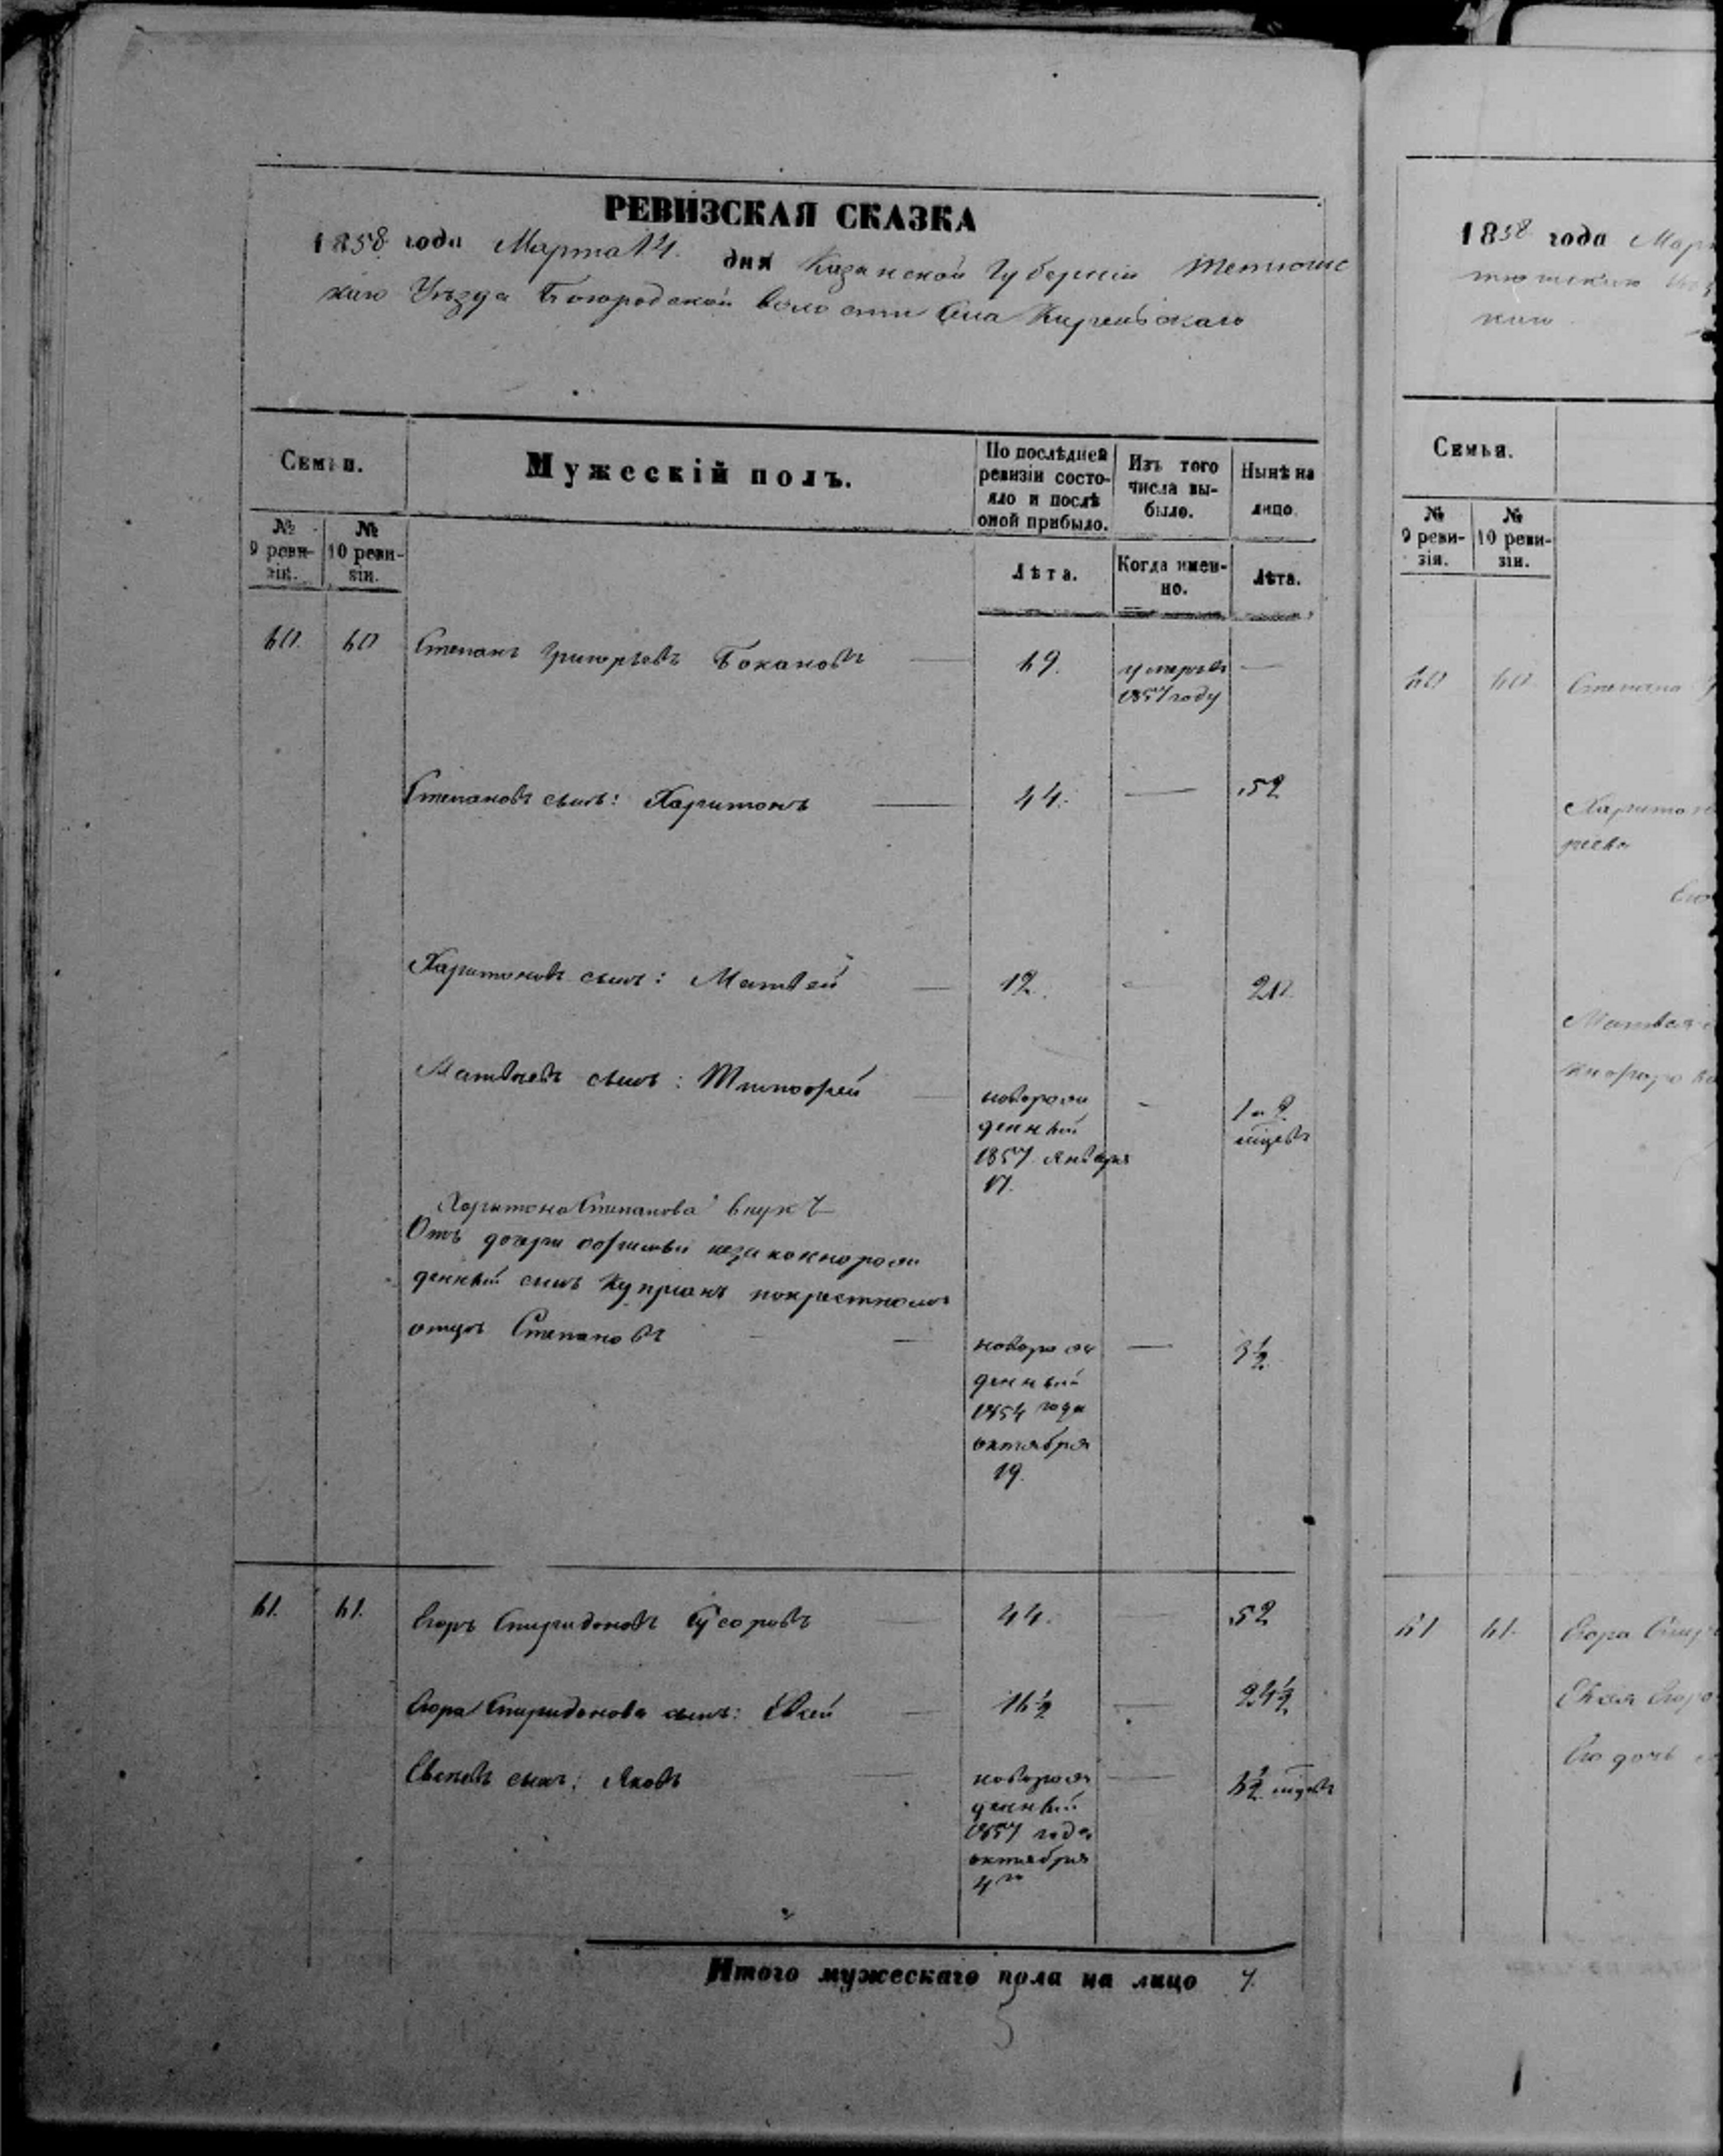 РЕВИЗСКАЯ СКАЗКА
1858 года Марта 14. дня Казанской Губерніи Тетюшс
каго Уѣзда Богородской волости Села
Семьи.
Мужескій полъ.
По послѣдней ревизіи состо-
яло и послѣ
оной прибыло.
Изъ того
числа вы-
было.
Нынѣ на
лицо.
№
9 реви-
зіи.
№
10 реви-
зіи.
Лѣта.
Когда имен-
но.
Лѣта.
60. 60 Степанъ Григорьевъ Бокановъ — 69. умеръ въ —
1857 году
Степановъ сынъ: Харитонъ — 44. — 52
Харитоновъ сынъ: Матвей — 12. — 20.
Матвеевъ сынъ: Тимофей — новорож
денный
1857 января
17.
- 1 и 2
мцевъ
Харитона Степанова внукъ
Отъ дочери незаконнорож
денный сынъ Куприянъ покрестному
отцу Степановъ — новорож
денный
1854 года
октября
19.
— 3½
61. 61. Егоръ Спиридоновъ — 44. — 52
Егора Спиридонова сынъ: Евсей — 16½ — 24½
Евсеевъ сынъ: Яковъ — новорож
денный
1857 года
октября
4го
— 5½ мцевъ
Итого мужескаго пола на лицо 7.
5
1858 года Мар
каго
Семьи.
№
9 реви-
зіи.
№
10 реви-
зіи.
60 60 Степана
Харитон
Его
Матвея
61 61. Егора Спир
Евсея Егоро
Его дочь